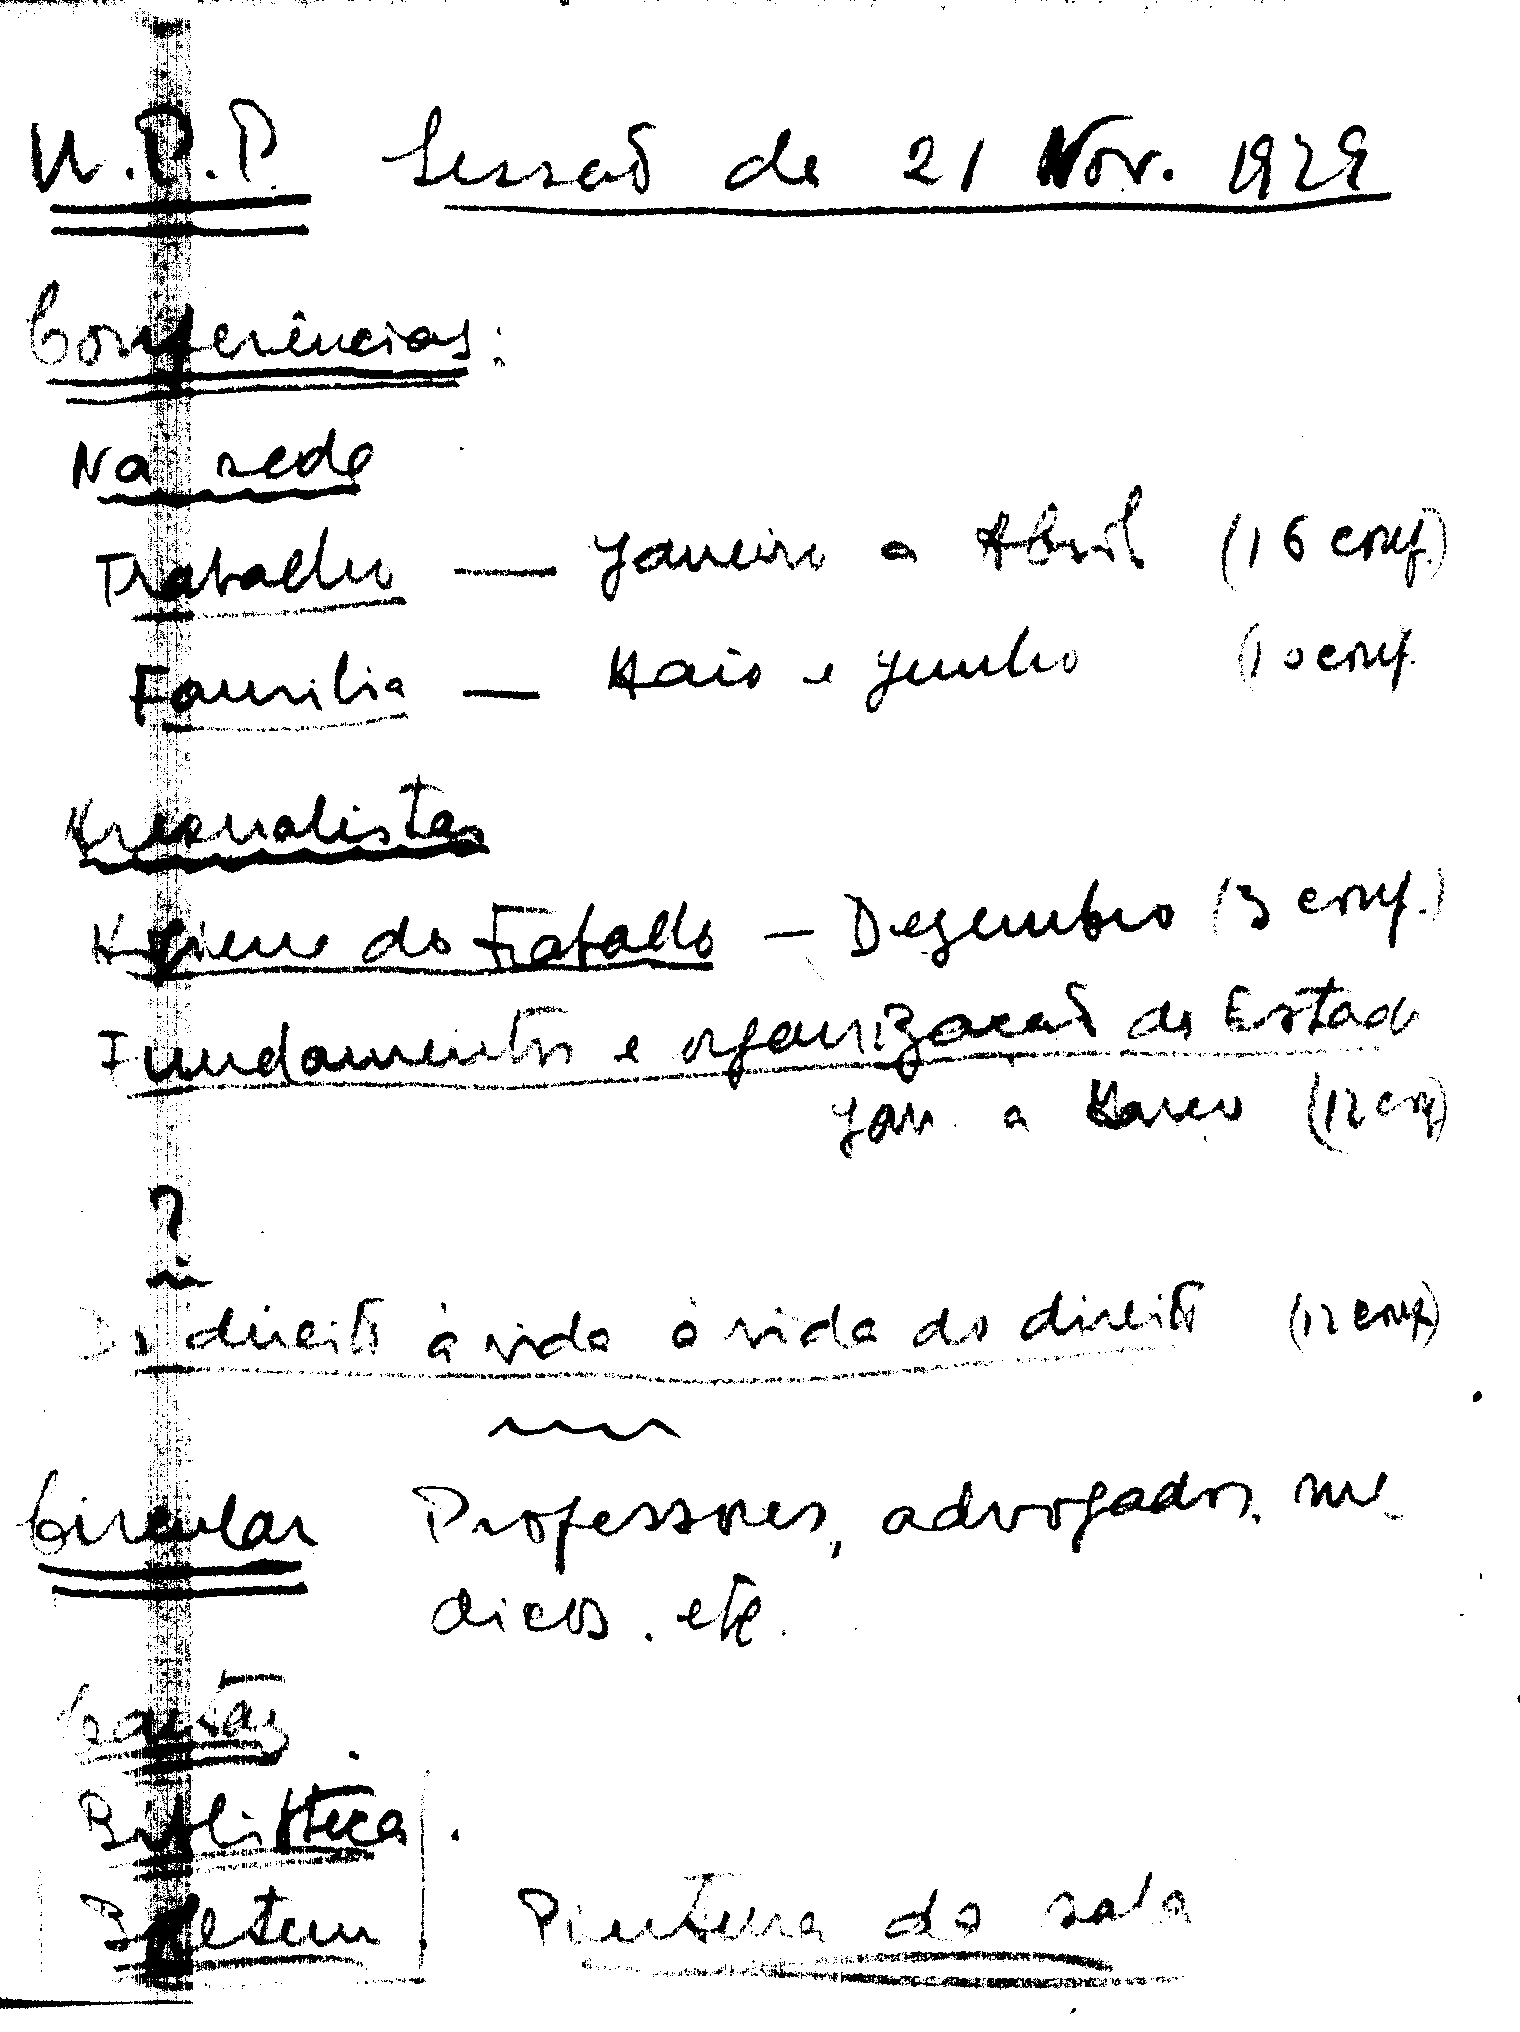 U.P.P. Sessão de 21 Nov. 1929
Conferências:
Na sede
Trabalho — Janeiro a Abril (16 conf.)
Familia — Maio e Junho (10 conf.
Arsenalistas
Higiene do Trabalho — Dezembro (3 conf.)
Fundamentos e organização do Estado
Jan. a Março (12 conf)
?
Do direito à vida à vida do direito (12 conf)
Circular Professores, advogados, mé-
dicos. etc.
Biblioteca.
Boletim Pintura da sala